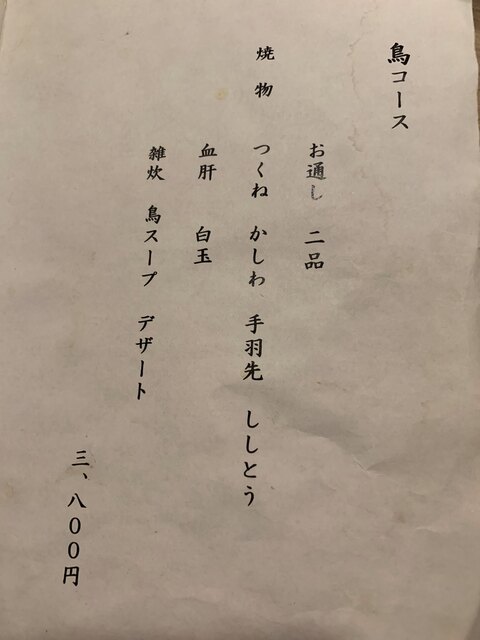 鳥コース
お通し 二品
焼物 つくね かしわ 手羽先 ししとう
血肝 白玉
雑炊 鳥スープ デザート
三、八００円